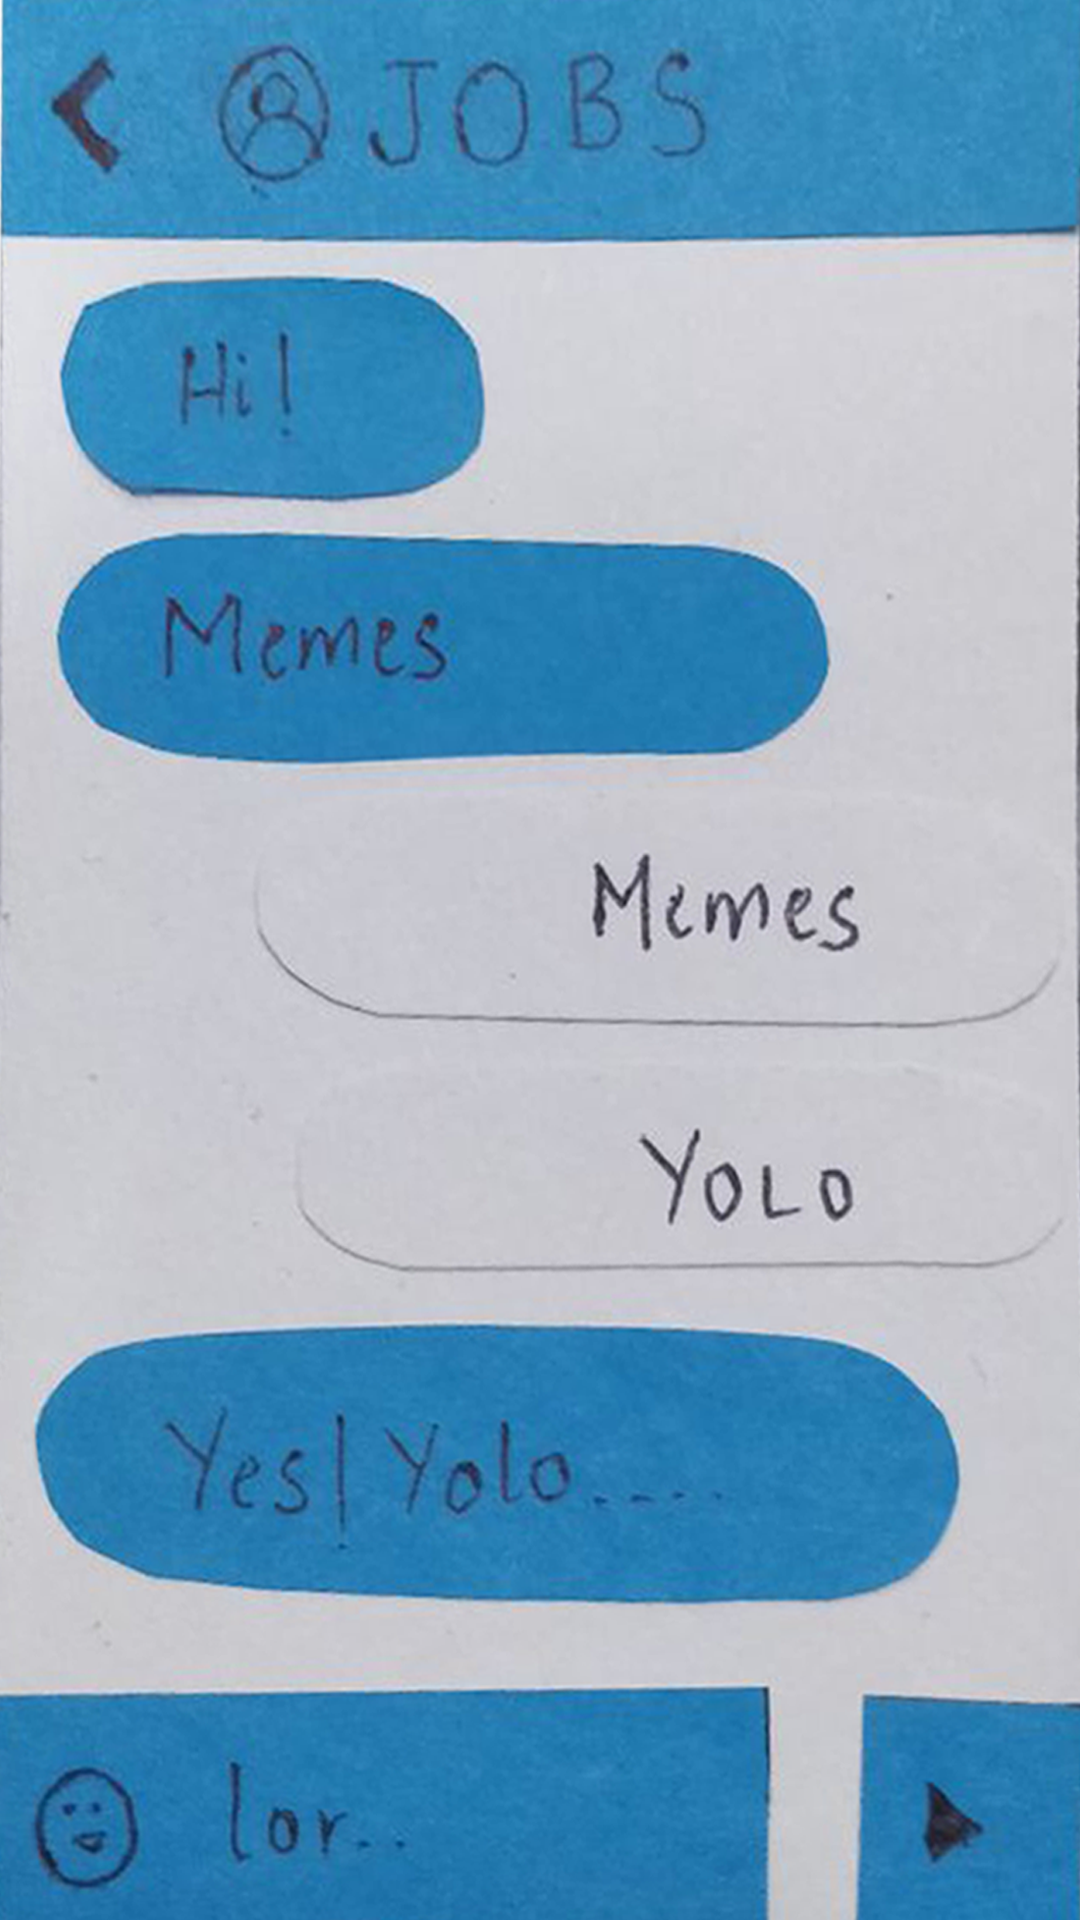 JOBS
Hi!
Memes
Memes
YOLO
Yes! Yolo.....
lor..